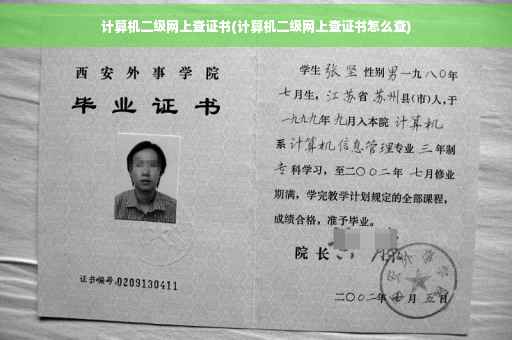 计算机二级网上查证书(计算机二级网上查证书怎么查)
西安外事学院
毕业证书
证书编号:0209130411
学生 张坚 性别 男 一九八〇年
七月生，江苏省 苏州县(市)人，于
一九九九年 九月入本院 计算机
系 计算机信息管理专业 三 年制
专 科学习，至二〇〇二年 七月修业
期满，学完教学计划规定的全部课程，
成绩合格，准予毕业。
院长
二〇〇二年 月 五 日